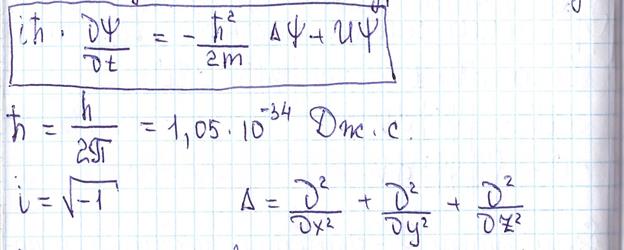 iħ · ∂Ψ/∂t = - ħ²/2m ΔΨ + UΨ
ħ = h/2π = 1,05 · 10⁻³⁴ Дж · с.
i = √-1 Δ = ∂²/∂x² + ∂²/∂y² + ∂²/∂z²